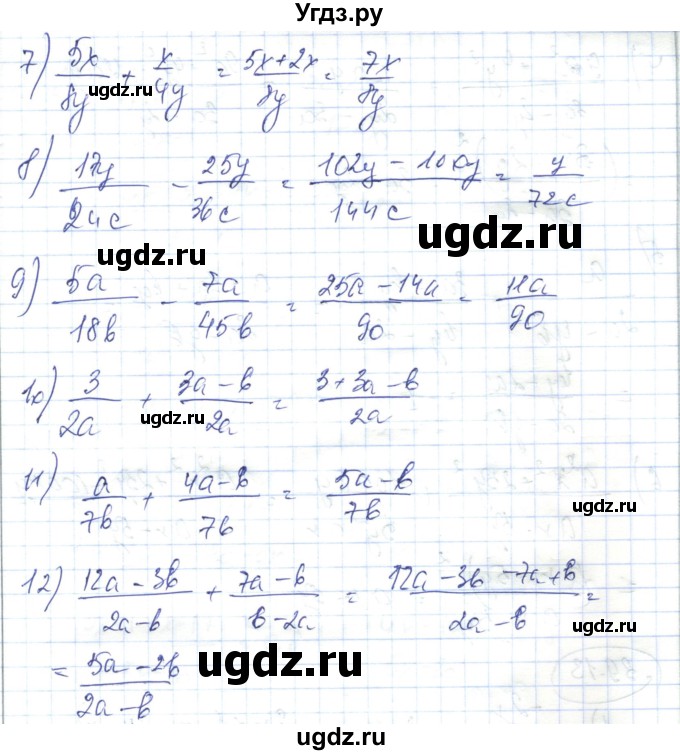 Угдз.ру
7) 5x/8y + x/4y = 5x+2x/8y = 7x/8y
ugdz.ru ugdz.ru
8) 17y/24c - 25y/36c = 102y - 100y/144c = y/72c
ugdz.ru
ugdz.ru ugdz.ru
9) 5a/18b - 7a/45b = 25a - 14a/90 = 11a/90
10) 3/2a + 3a - b/2a = 3 + 3a - b/2a
ugdz.ru
11) a/7b + 4a - b/7b = 5a - b/7b
ugdz.ru
12) 12a - 3b/2a - b + 7a - b/b - 2a = 12a - 3b - 7a + b/2a - b =
ugdz.ru
= 5a - 2b/2a - b
ugdz.ru
ugdz.ru